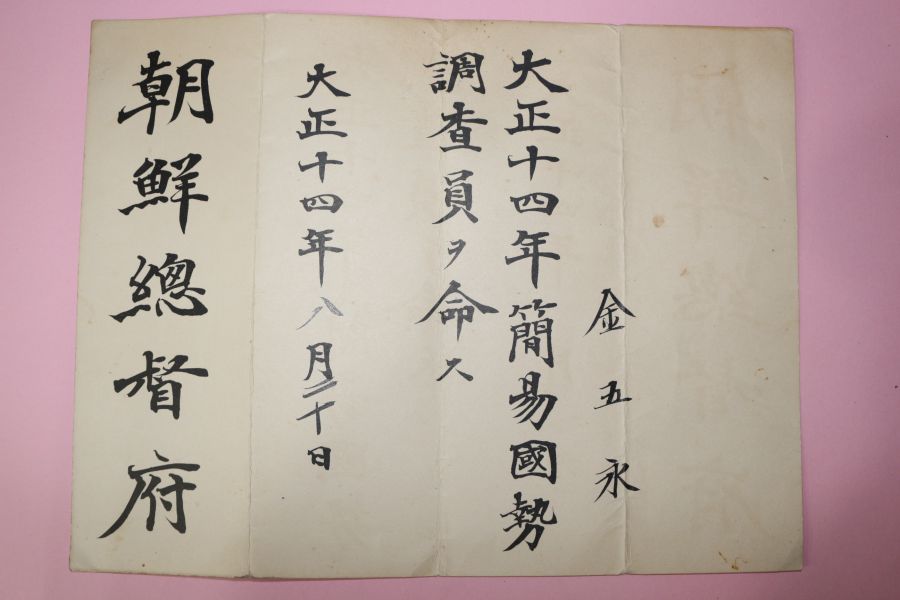 金五永
大正十四年簡易國勢
調查員ヲ命ス
大正十四年八月二十日
朝鮮總督府